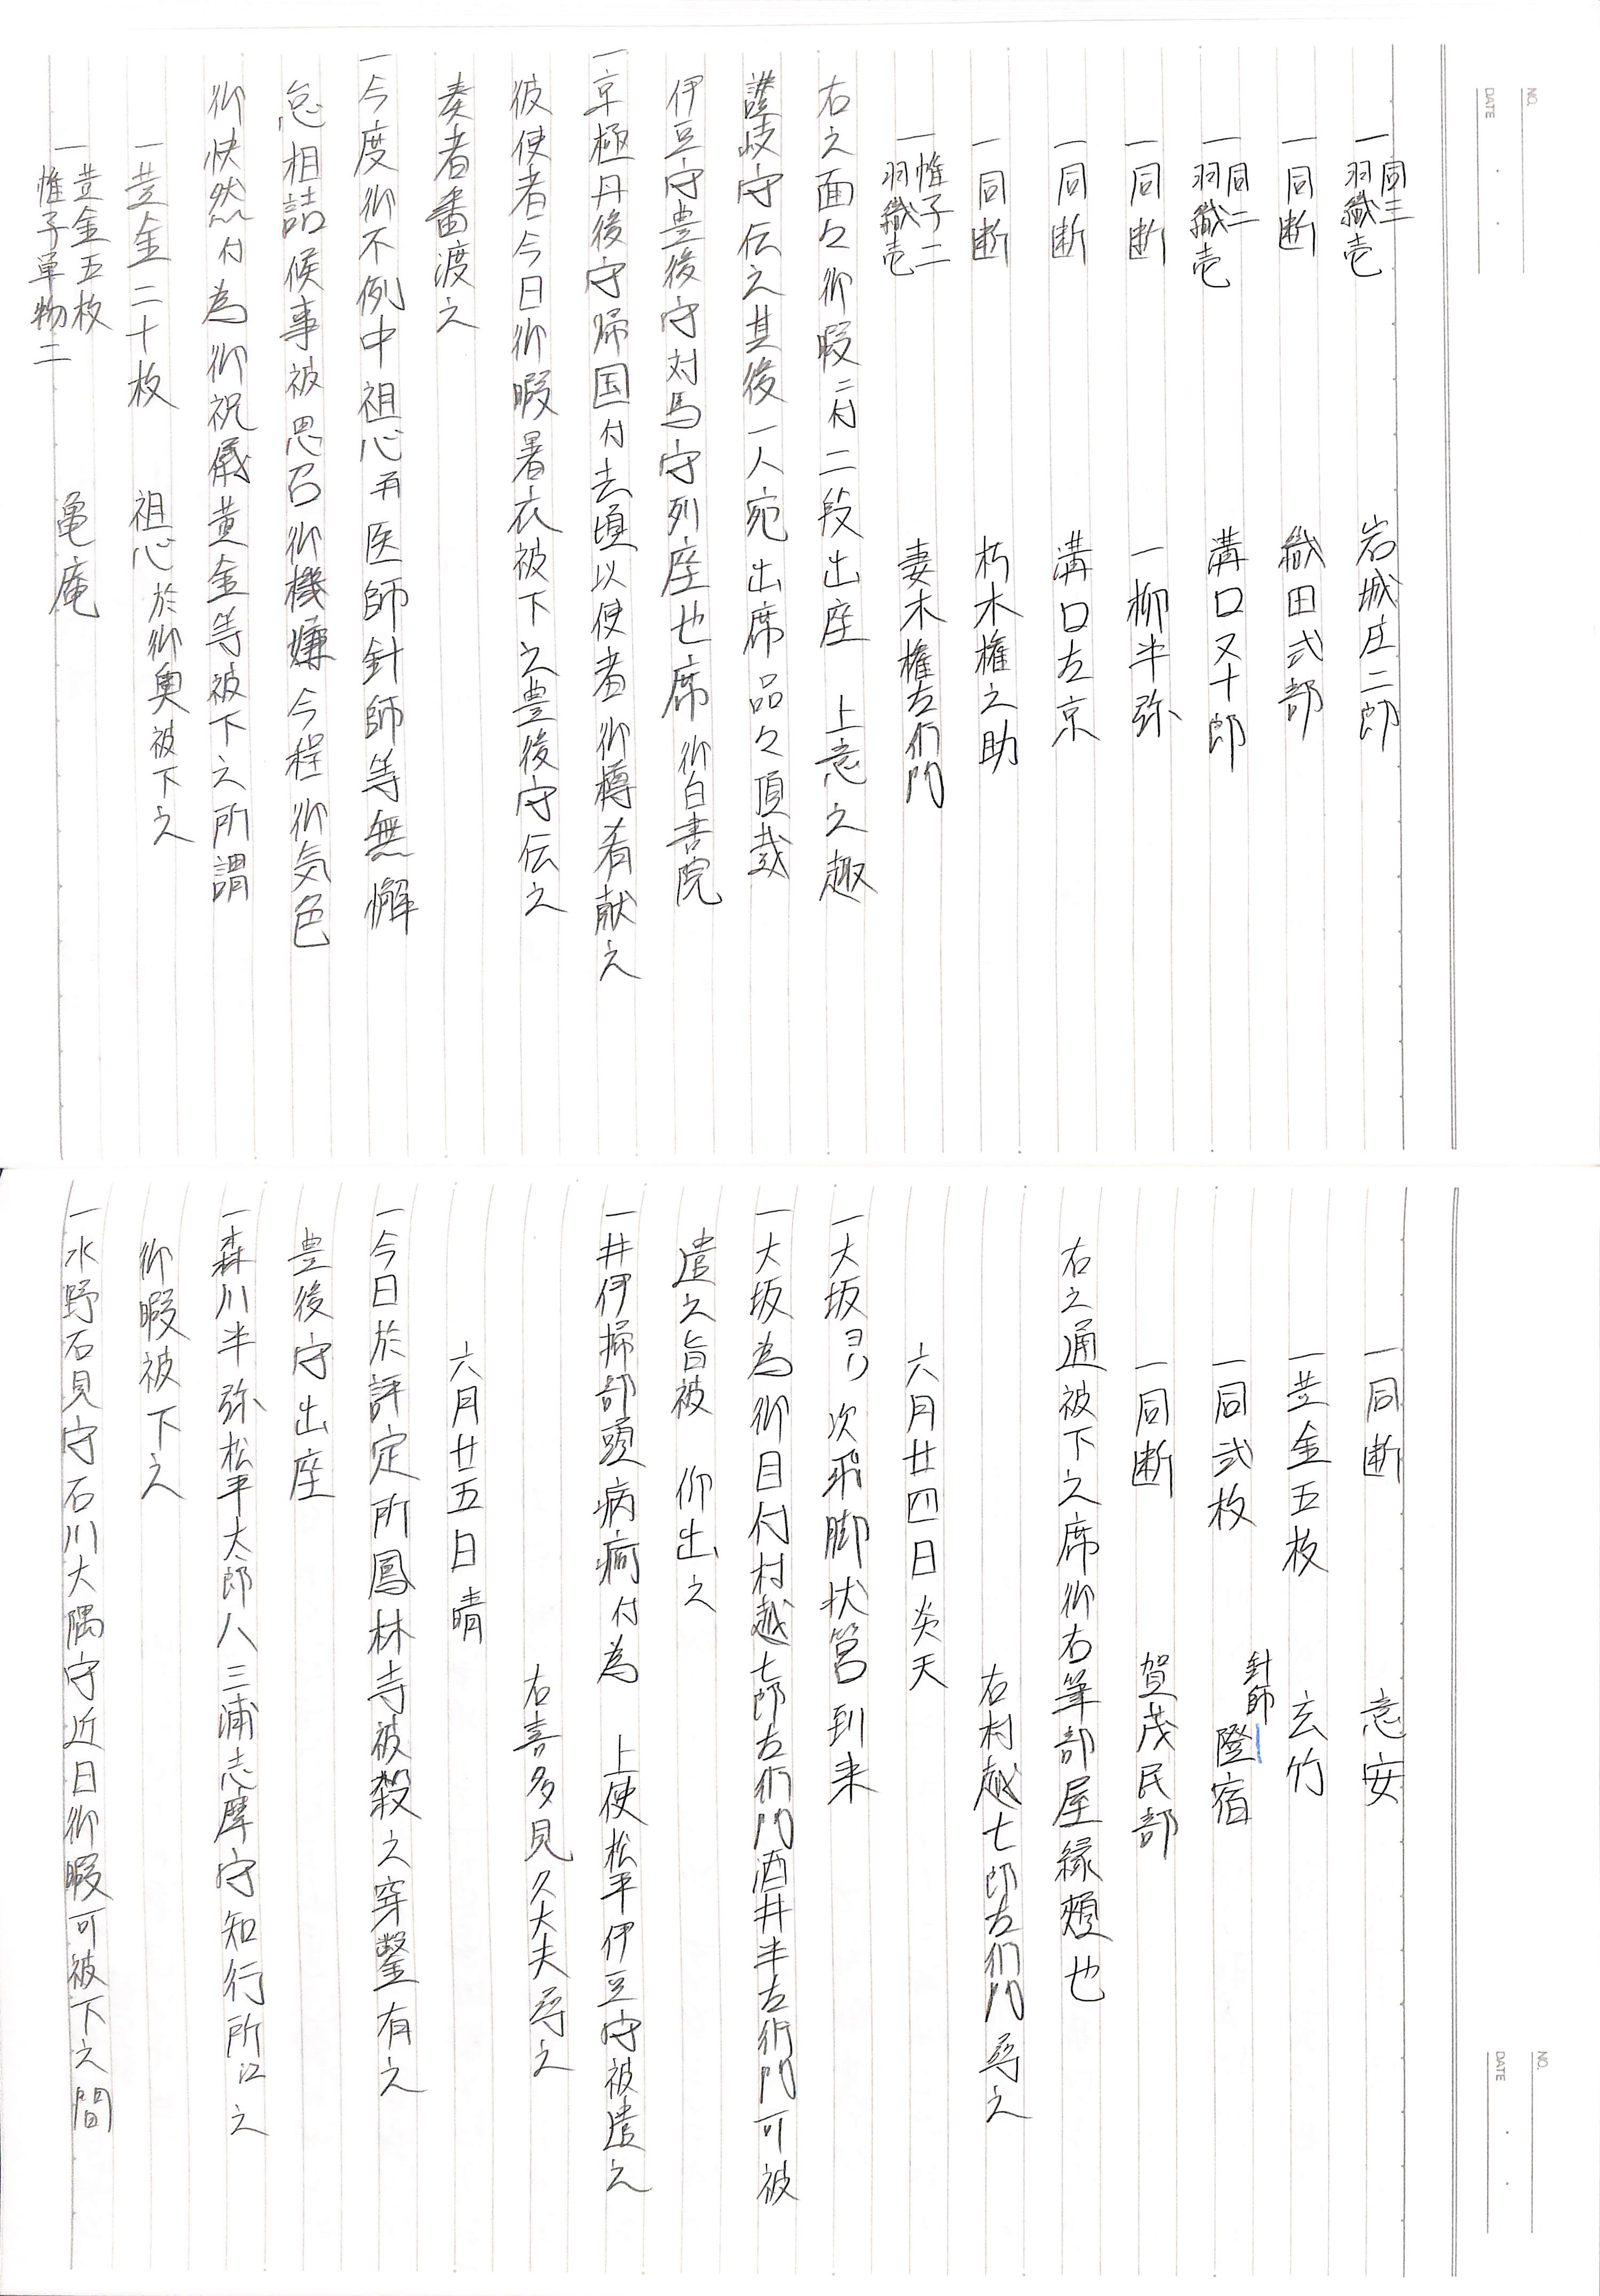 NO.
DATE
一同三羽織壱 岩城庄二郎
一同断 織田式部
一同二羽織壱 溝口又十郎
一同断 一柳半弥
一同断 溝口左京
一同断 朽木権之助
一帷子二羽織壱 妻木権左衛門
右之面々御暇ニ付二段出座 上意之趣
讃岐守伝之其後一人宛出席品々頂戴
伊豆守豊後守対馬守列座也席御白書院
一京極丹後守帰国付去頃以使者御樽肴献之
彼使者今日御暇暑衣被下之豊後守伝之
奏者番渡之
一今度御不例中祖心并医師針師等無懈
怠相詰候事被思召御機嫌今程御気色
御快然付為御祝儀黄金等被下之所謂
一黄金二十枚 祖心於御奥被下之
一黄金五枚帷子単物二 亀庵
NO.
DATE
一同断 意安
一黄金五枚 玄竹
一同弐枚 針師 隥宿
一同断 賀茂民部
右之通被下之席御右筆部屋縁頬也
右村越七郎左衛門尋之
六月廿四日炎天
一大坂ヨリ次飛脚状筥到来
一大坂為御目付村越七郎左衛門酒井半左衛門可被
遣之旨被 仰出之
一井伊掃部頭病痾付為 上使松平伊豆守被遣之
右喜多見久大夫尋之
六月廿五日晴
一今日於評定所鳳林寺被殺之穿鑿有之
豊後守出座
一森川半弥松平太郎八三浦志摩守知行所江之
御暇被下之
一水野石見守石川大隅守近日御暇可被下之間